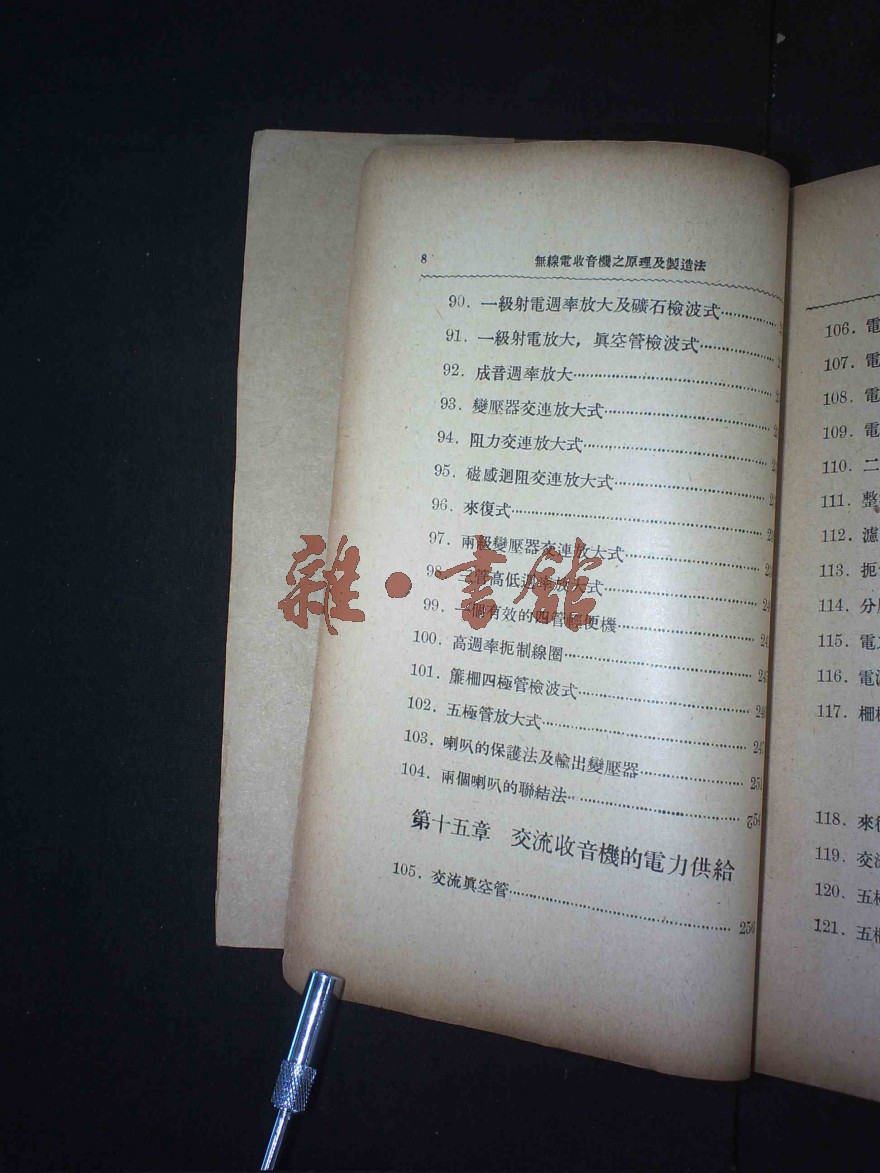 8 無線電收音機之原理及製造法
90. 一級射電週率放大及礦石檢波式
91. 一級射電放大，眞空管檢波式
92. 成音週率放大
93. 變壓器交連放大式
94. 阻力交連放大式
95. 磁感迴阻交連放大式
96. 來復式
97. 兩級變壓器交連放大式
98. 三管高低週率放大式
99. 一個有效的四管輕便機
100. 高週率扼制線圈
101. 簾柵四極管檢波式
102. 五極管放大式
103. 喇叭的保護法及輸出變壓器 251
104. 兩個喇叭的聯結法
第十五章 交流收音機的電力供給
105. 交流眞空管 256
雜·書館
106. 電
107. 電
108. 電
109. 電
110. 二
111. 整
112. 濾
113. 扼
114. 分
115. 電
116. 電
117. 柵
118. 來
119. 交
120. 五
121. 五